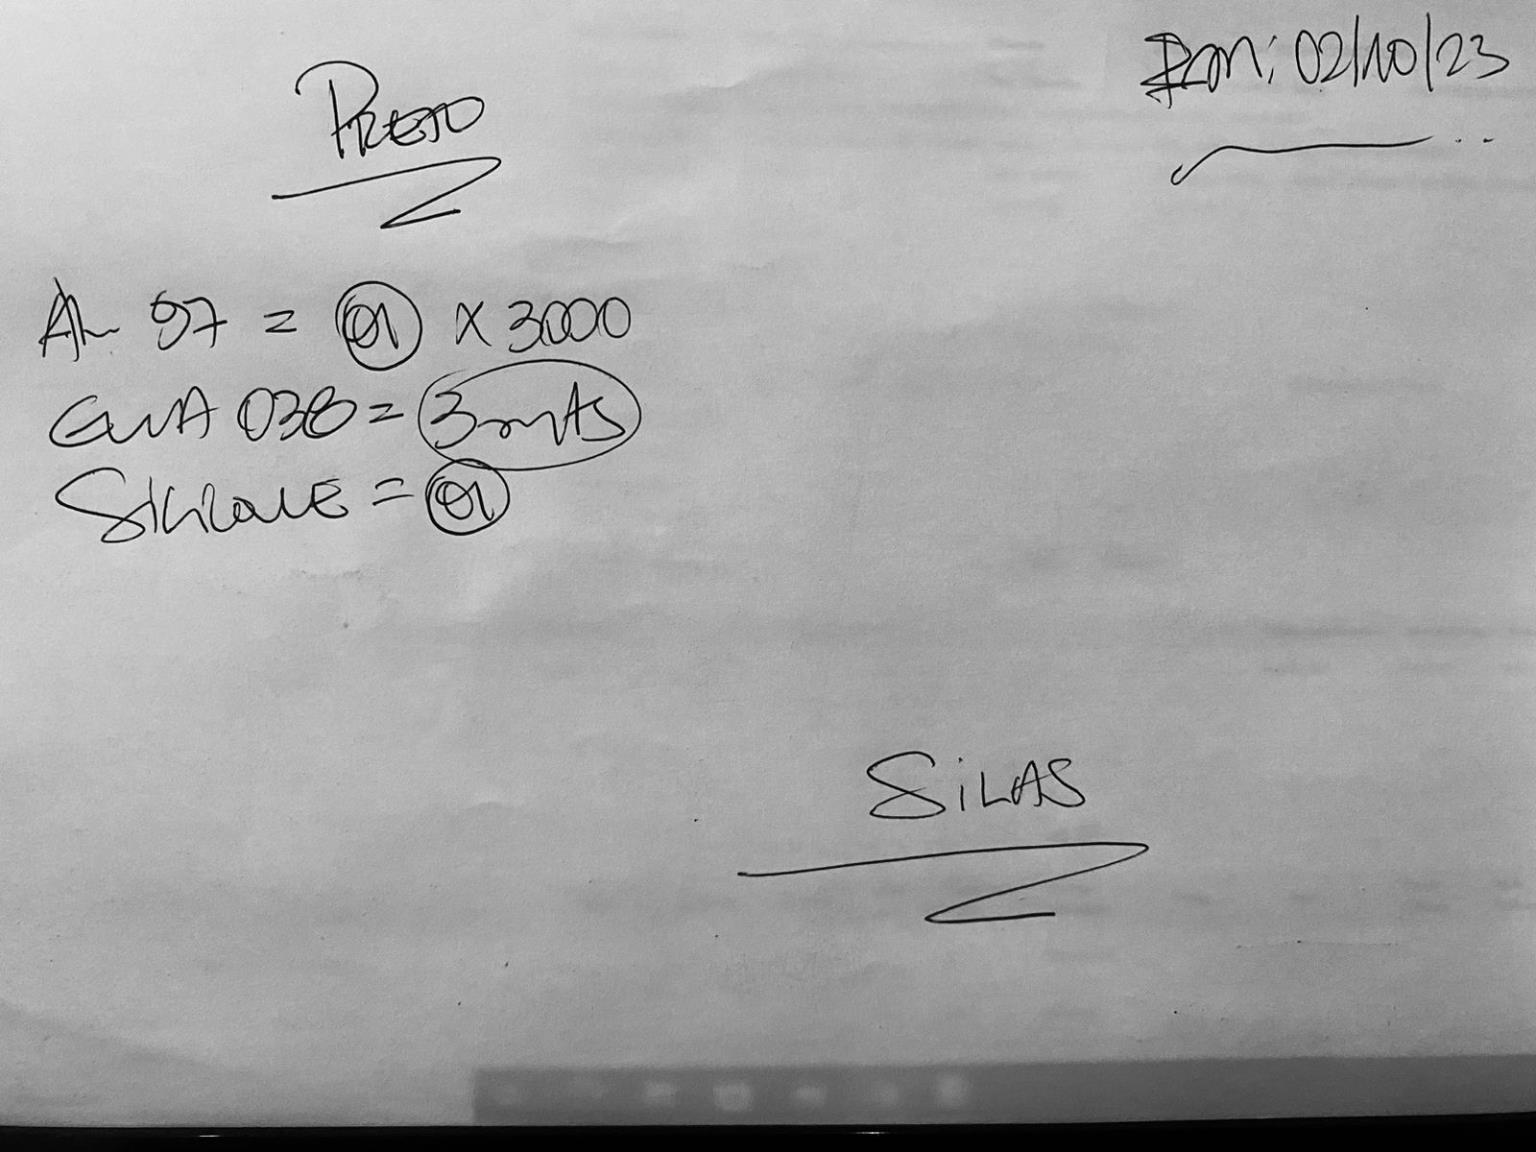 PRETO
Em: 02/10/23
AL 97 = 01 X 3000
GUIA 038 = 3 mts
SILICONE = 01
SiLAS